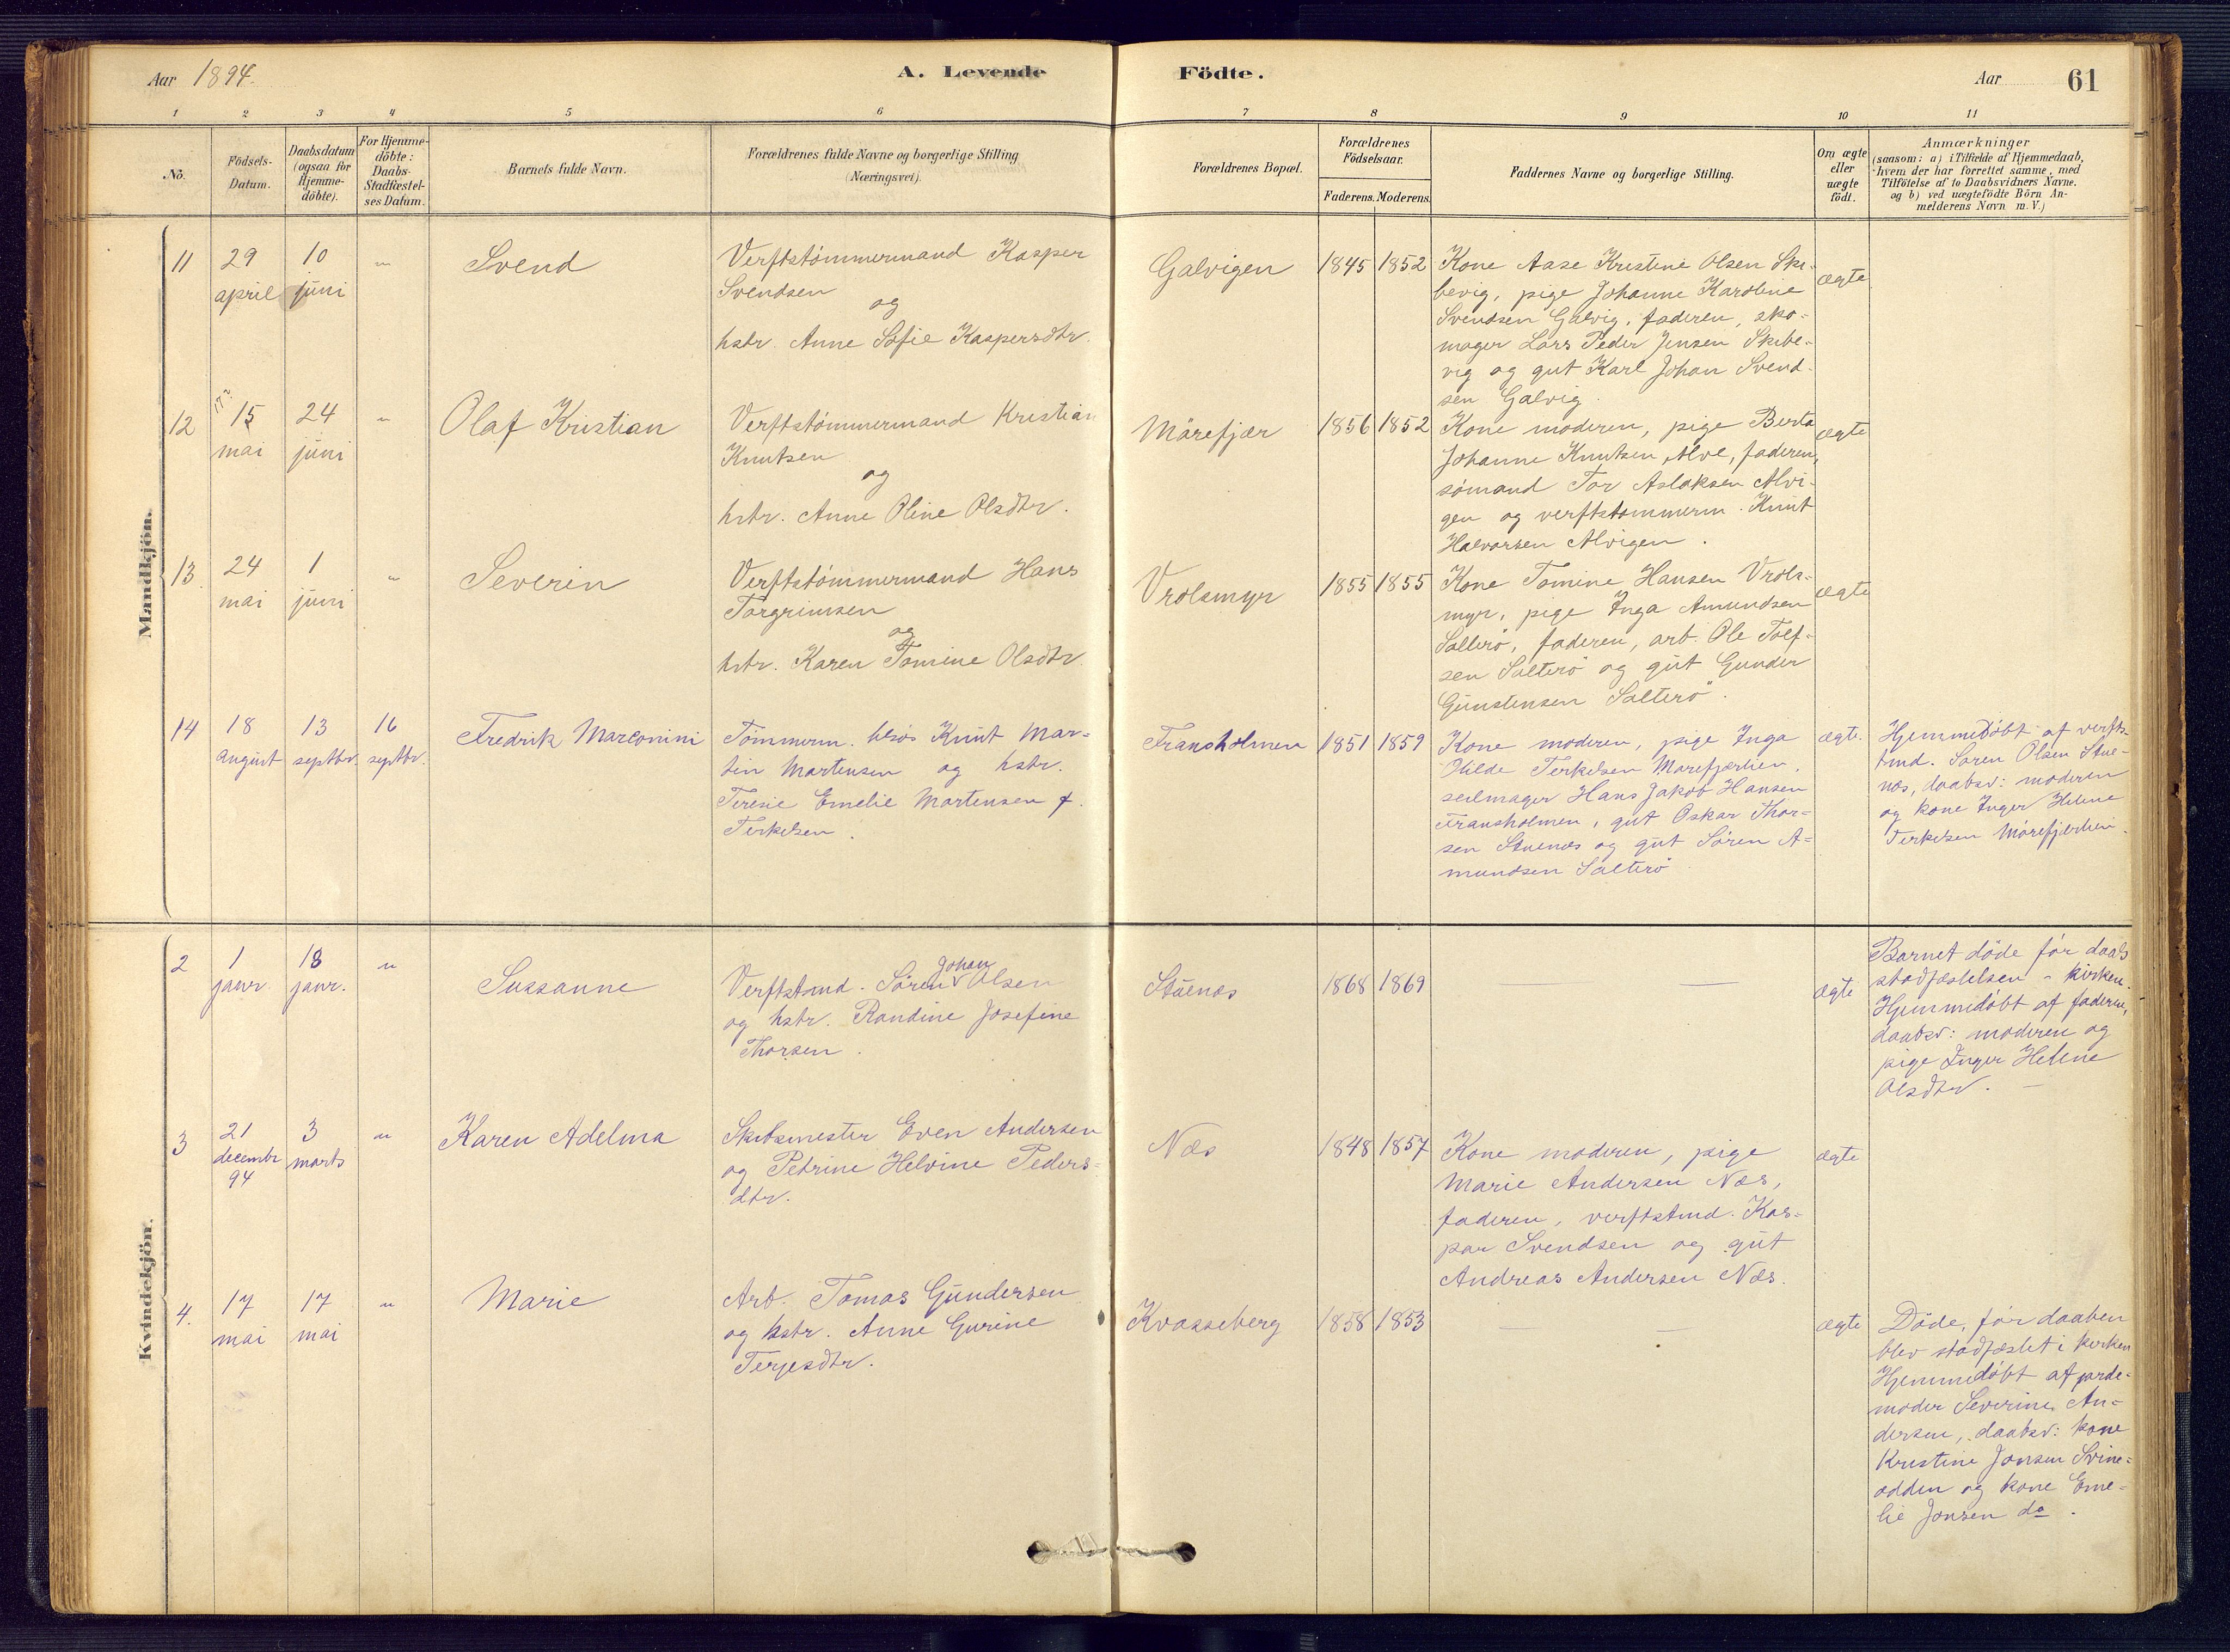 Aar 1894.
A. Levende Födte.
Aar 61
1 2 3 4 5 6 7 8 9 10 11
No.
Födsels-Datum.
Daabsdatum (ogsaa for Hjemme-döbte).
For Hjemme-döbte: Daabs-Stadfæstel-ses Datum.
Barnets fulde Navn.
Forældrenes fulde Navne og borgerlige Stilling (Næringsvei).
Forældrenes Bopæl.
Forældrenes Födselsaar.
Faderens. Moderens.
Faddernes Navne og borgerlige Stilling.
Om ægte eller uægte födt.
Anmærkninger
(saasom: a) i Tilfælde af Hjemmedaab,
hvem der har forrettet samme, med
Tilföielse af to Daabsvidners Navne.
og b) ved uægtefödte Börn An-
melderens Navn m. V.)
Mandkjön.
11
29 april
10 juni
"
Svend
Verftstömmermand Kasper
Svendsen
og
hstr. Anne Sofie Kaspersdtr.
Galvigen
1845 1852
Kone Aase Kristine Olsen Ski-
bevig, pige Johanne Karoline
Svendsen Galvig, faderen, sko-
mager Lars Peder Jensen Skibe-
vig og gut Karl Johan Svend-
sen Galvig.
ægte
12
15 mai
24 juni
"
Olaf Kristian
Verftstömmermand Kristian
Knutsen
og
hstr. Anne Oline Olsdtr.
Mörefjær
1856 1852
Kone moderen, pige Berta
Johanne Knutsen Alve, faderen,
sömand Tor Aslaksen Alvi-
gen og verftstömmerm. Knut
Halvorsen Alvigen.
ægte
13.
24 mai
1 juni
"
Severin
Verftstömmermand Hans
Torgrimsen
og
hstr. Karen Tomine Olsdtr.
Vrolsmyr
1855 1855
Kone Tomine Hansen Vrols-
myr, pige Inga Amundsen
Salterö, faderen, arb. Ole Tolf-
sen Salterö og gut Gunder
Gunstensen Salterö.
ægte
14
18 august
13 septbr.
16 septbr.
Fredrik Marconini
Tömmerm. hsös Knut Mar-
tin Martensen og hstr.
Teresie Emelie Martensen f.
Terkelsen.
Fransholmen
1851 1859
Kone moderen, pige Inga
Hilde Terkelsen Mörefjærhein,
seilmager Hans Jakob Hansen
Fransholmen, gut Oskar Thor-
sen Stuenæs og gut Sören A-
mundsen Salterö
ægte.
Hjemmedöbt af verfts-
tmd. Sören Olsen Stue-
næs, daabsv: moderen
og kone Inger Helene
Terkelsen Mörefjærhein.
Kvindekjön.
2
1 janr.
18 janr.
"
Sussanne
Verftstmd. Sören Johan Olsen
og hstr. Randine Josefine
Thorsen.
Stuenæs
1868 1869
— —
ægte
Barnet döde för daabs
stadfæstelsen i kirken.
Hjemmedöbt af faderen,
daabsv: moderen og
pige Inger Helene
Olsdtr. —
3
21 decembr 94
3 marts
"
Karen Adelma
Skibsmester Even Andersen
og Petrine Helvine Peders-
dtr.
Næs
1848 1857
Kone moderen, pige
Marie Andersen Næs,
faderen, verftstmd. Kas-
par Svendsen og gut
Andreas Andersen Næs.
ægte
4.
17 mai
17 mai
"
Marie
Arb. Tomas Gundersen
og hstr. Anne Gurine
Terjesdtr.
Kvasseberg
1858 1853
— —
ægte
Döde, för daaben
blev stadfæstet i kirken
Hjemmedöbt af jorde-
moder Severine An-
dersen, daabsv: kone
Kristine Jonsen Svine-
odden og kone Eme-
lie Jonsen do.